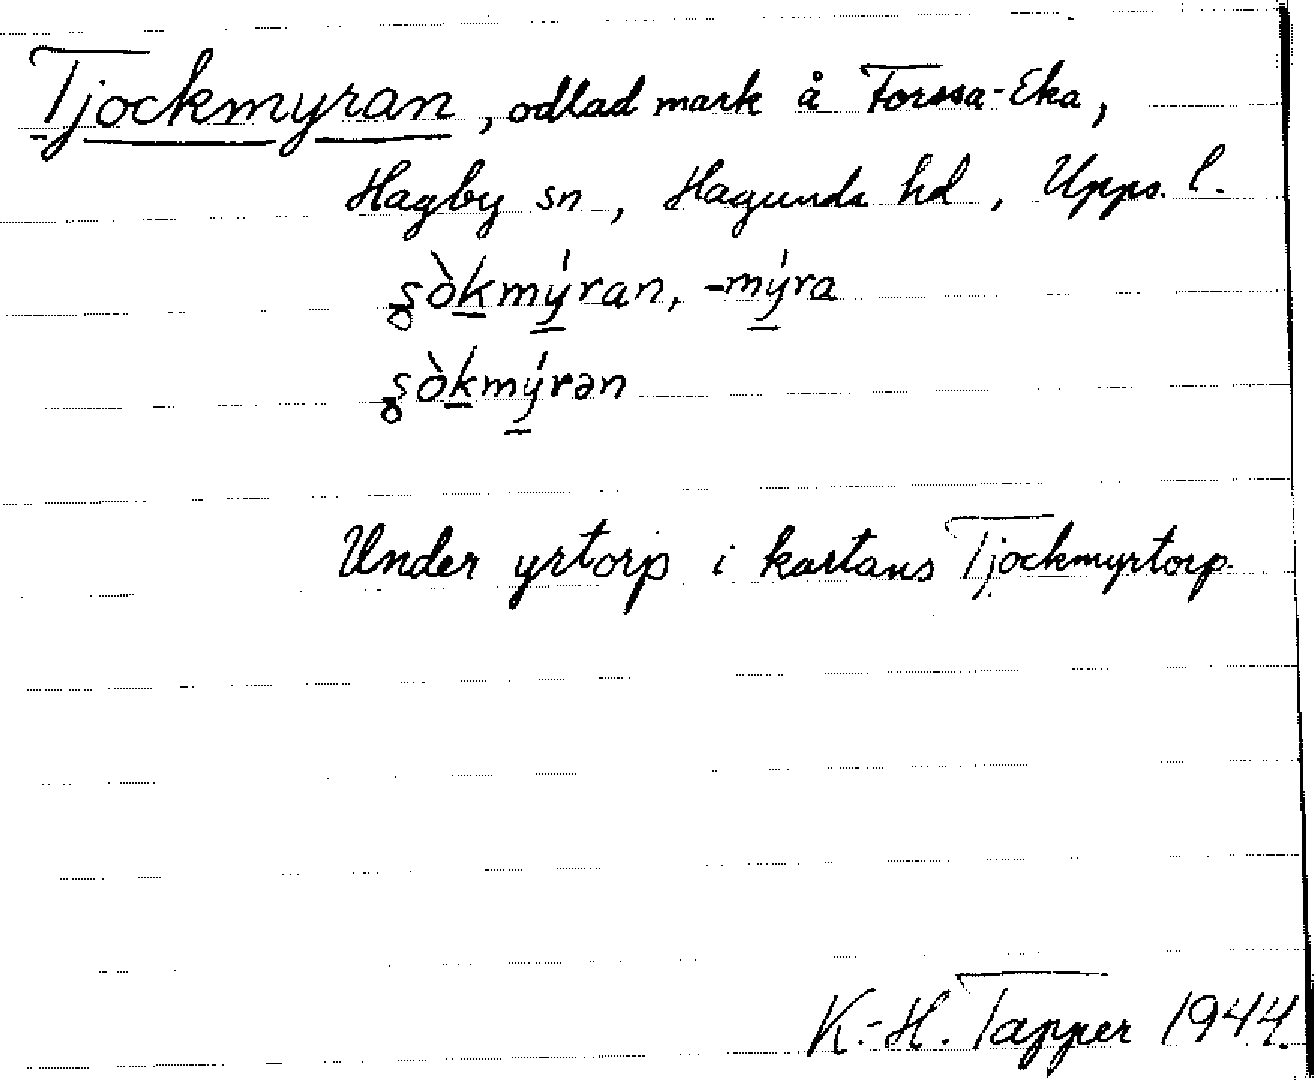 Tjockmyran, odlad mark å Forssa-Eka,
Hagby sn, Hagunda hd, Upps. l.
ʂòkmýran, -mýra
ʂòkmýrən
Under yrtorp i kartans Tjockmyrtorp.
K.-H. Tapper 1944.